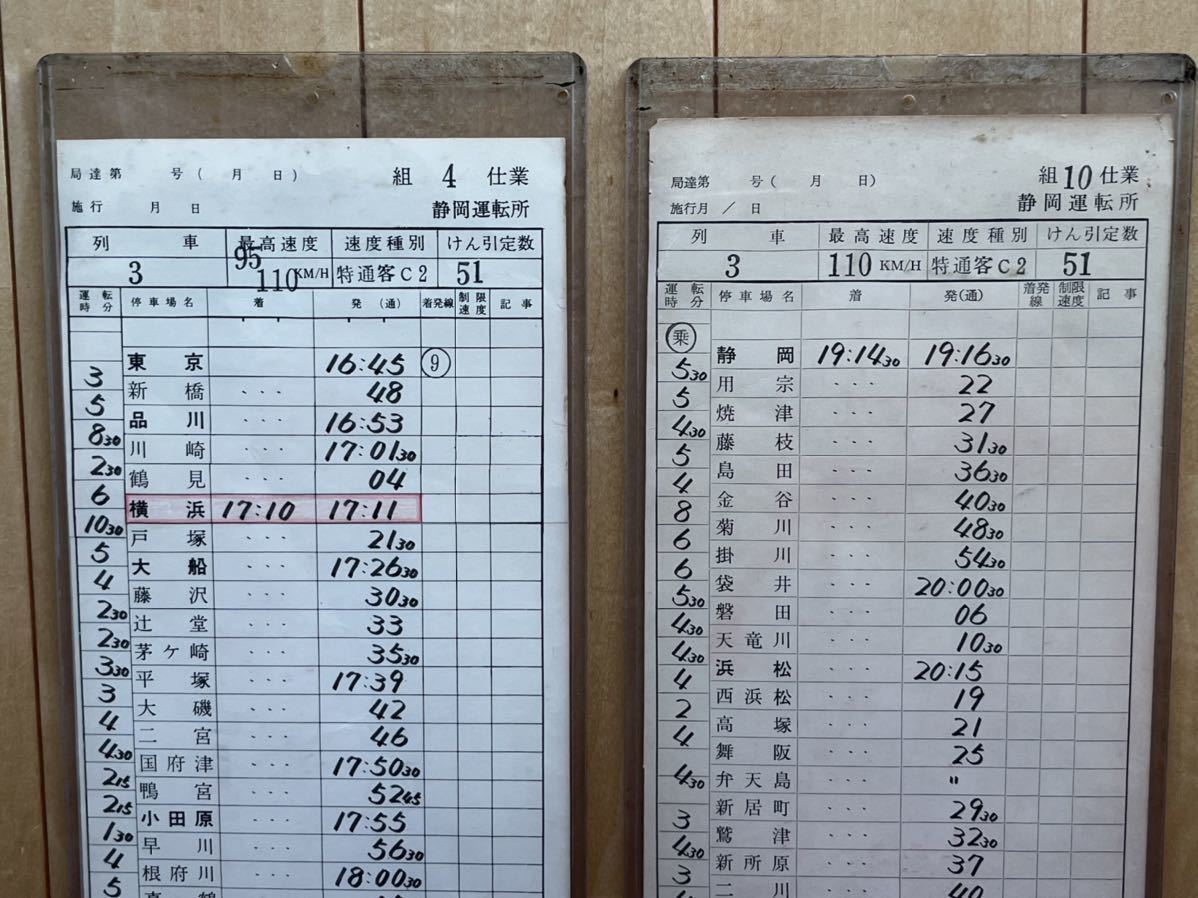 局達第 号( 月 日) 組 4 仕業
施行 月 日 静岡運転所
列車 最高速度 速度種別 けん引定数
3 95 110 KM/H 特通客C2 51
運転時分 停車場名 着 発(通) 着発線 制限速度 記事
東京 16:45 ⑨
3
新橋 ・・・ 48
5
品川 ・・・ 16:53
8 30
川崎 ・・・ 17:01 30
2 30
鶴見 ・・・ 04
6
横浜 17:10 17:11
10 30
戸塚 ・・・ 21 30
5
大船 ・・・ 17:26 30
4
藤沢 ・・・ 30 30
2 30
辻堂 ・・・ 33
2 30
茅ヶ崎 ・・・ 35 30
3 30
平塚 ・・・ 17:39
3
大磯 ・・・ 42
4
二宮 ・・・ 46
4 30
国府津 ・・・ 17:50 30
2 15
鴨宮 ・・・ 52 45
2 15
小田原 ・・・ 17:55
1 30
早川 ・・・ 56 30
4
根府川 ・・・ 18:00 30
5
局達第 号( 月 日) 組 10 仕業
施行月 / 日 静岡運転所
列車 最高速度 速度種別 けん引定数
3 110 KM/H 特通客C2 51
運転時分 停車場名 着 発(通) 着発線 制限速度 記事
乗
静岡 19:14 30 19:16 30
5 30
用宗 ・・・ 22
5
焼津 ・・・ 27
4 30
藤枝 ・・・ 31 30
5
島田 ・・・ 36 30
4
金谷 ・・・ 40 30
8
菊川 ・・・ 48 30
6
掛川 ・・・ 54 30
6
袋井 ・・・ 20:00 30
5 30
磐田 ・・・ 06
4 30
天竜川 ・・・ 10 30
4 30
浜松 ・・・ 20:15
4
西浜松 ・・・ 19
2
高塚 ・・・ 21
4
舞阪 ・・・ 25
弁天島 ・・・ 〃
4 30
新居町 ・・・ 29 30
3
鷲津 ・・・ 32 30
4 30
新所原 ・・・ 37
3
二川 ・・・ 40